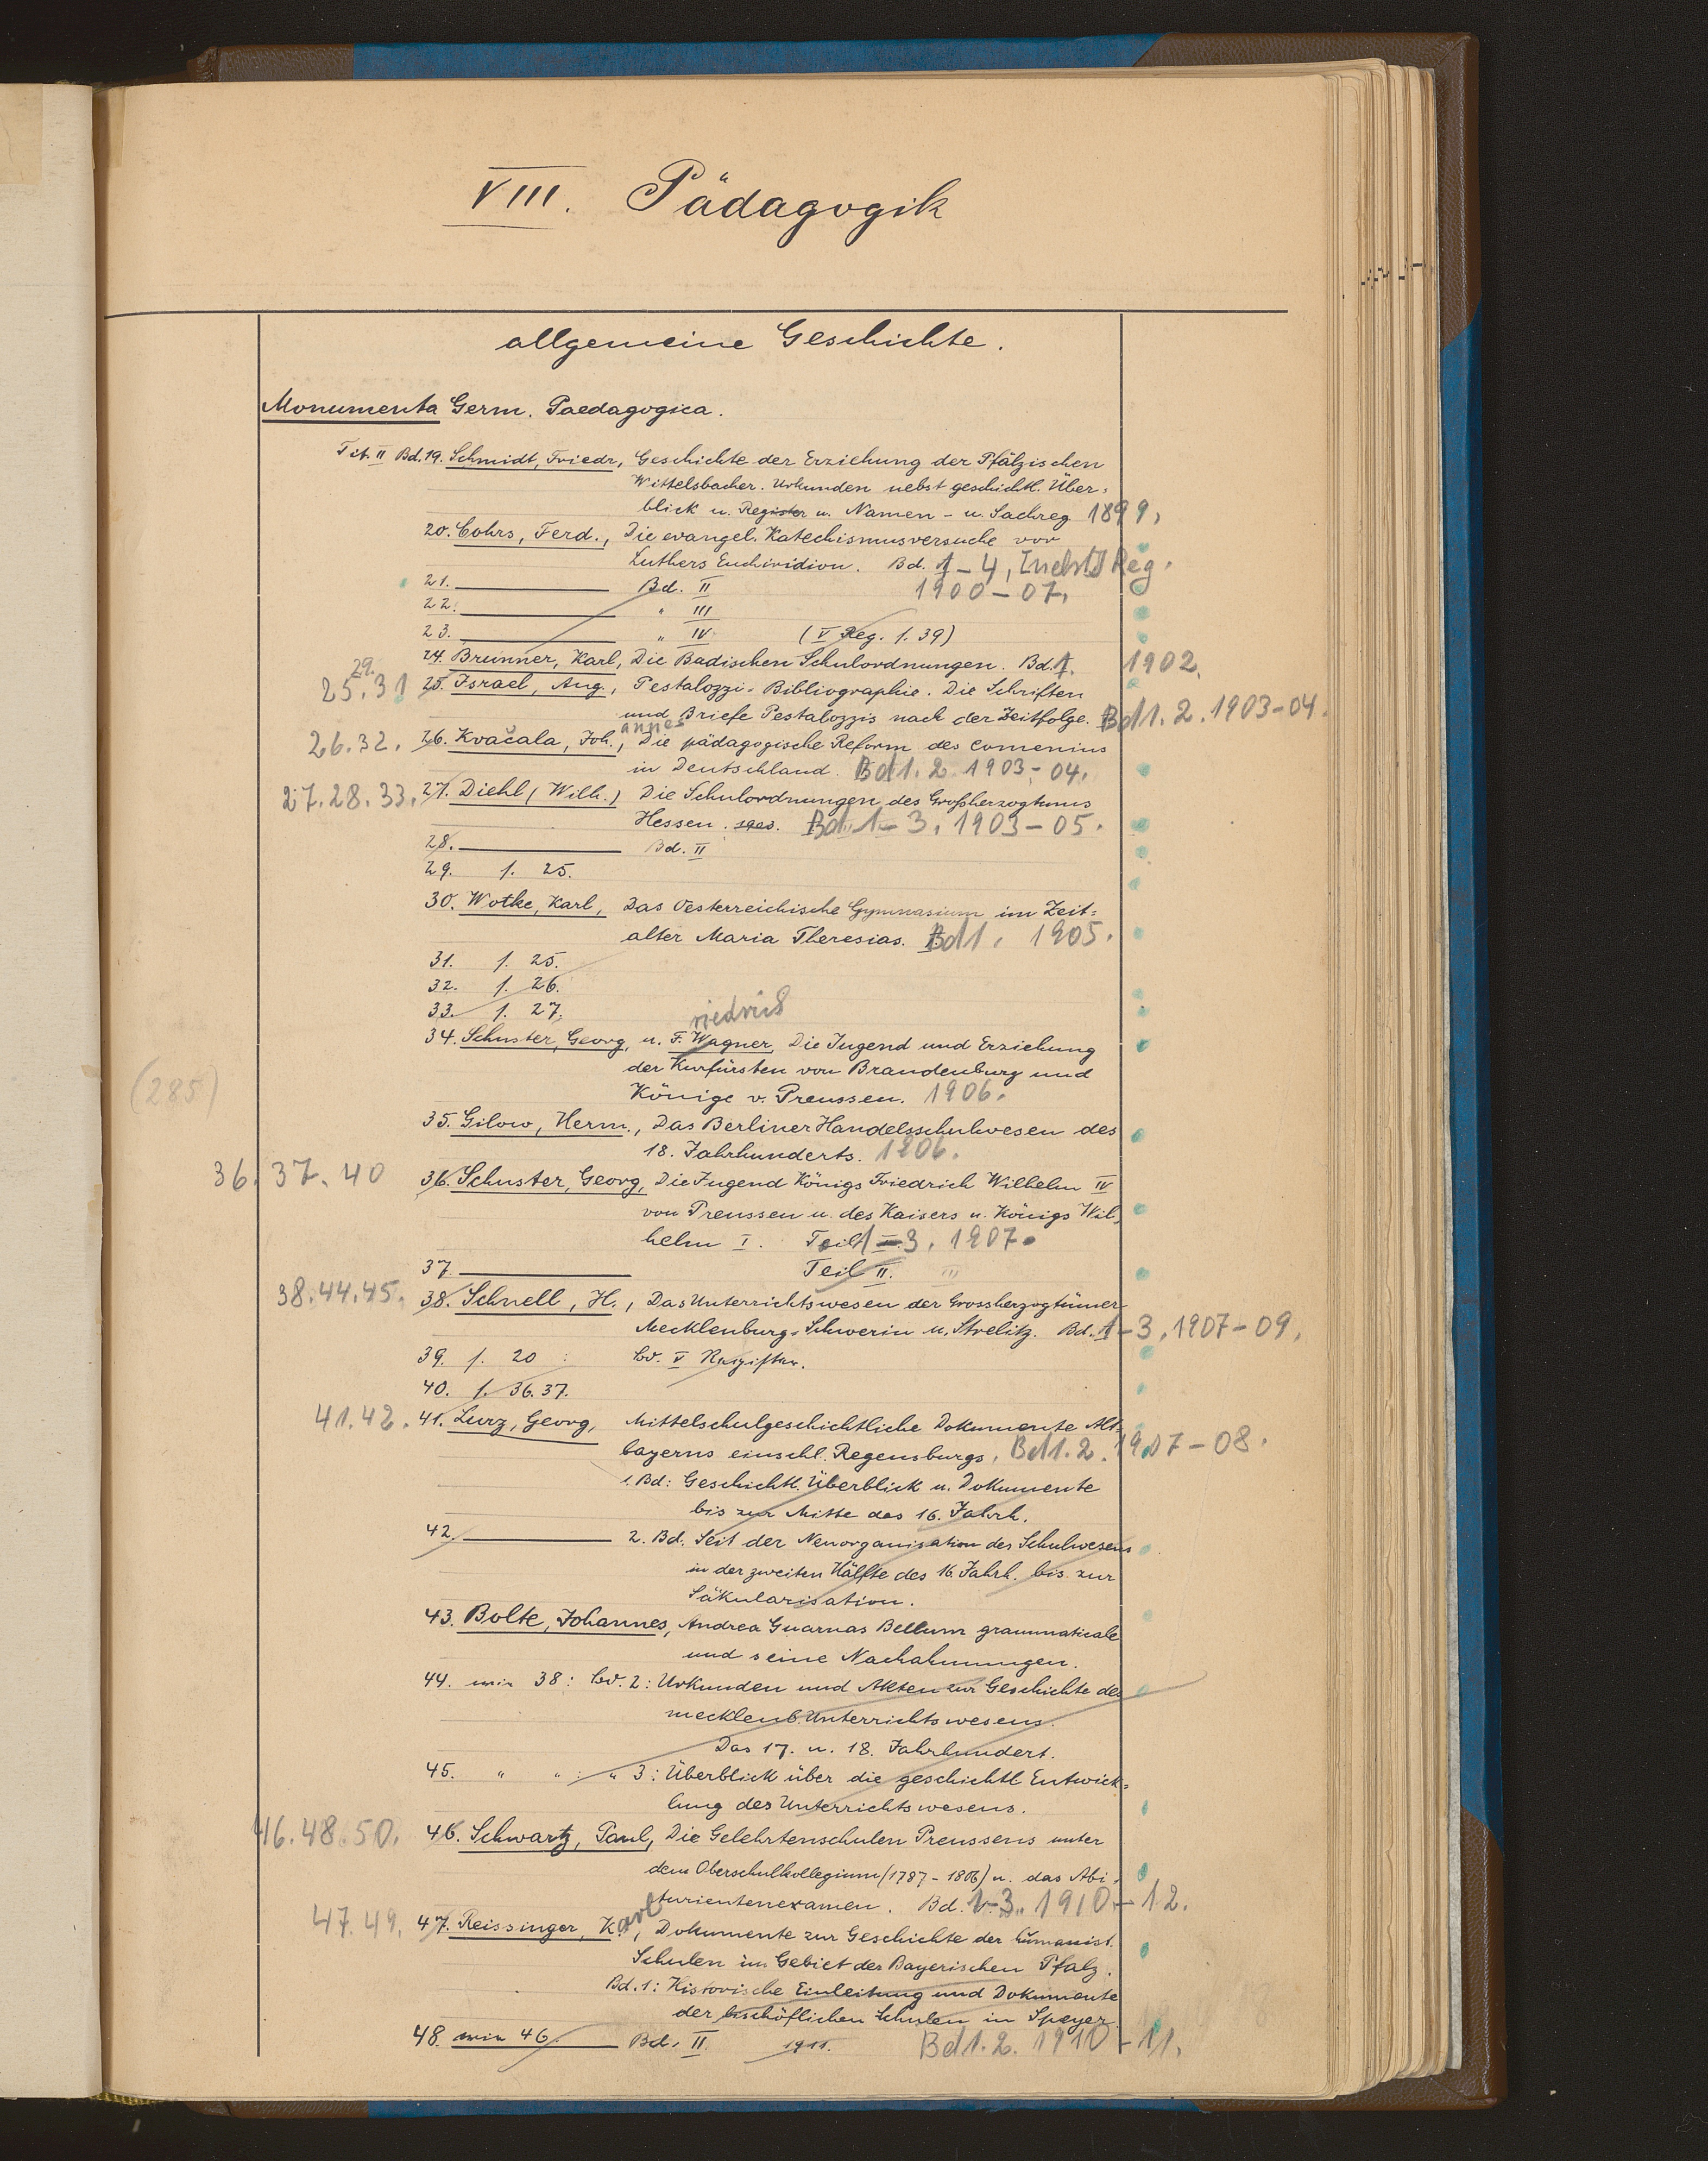 VIII. Pädagogik
allgemeine Geschichte.
Monumenta Germ. Paedagogica.
Tit. II Bd. 19. Schmidt, Friedr., Geschichte der Erziehung der Pfälzischen
Wittelsbacher. Urkunden nebst geschichtl. Über-
blick u. Register u. Namen- u. Sachreg 1899.
20. Cohrs, Ferd., Die evangel. Katechismusversuche vor
Luthers Enchiridion. Bd. 1-4, Reg.
21. Bd. II 1900-07.
22. " III
23. " IV (V Reg. s. 39)
24. Brunner, Karl, Die Badischen Schulordnungen. Bd. 1. 1902.
25. 29. 31 25. Israel, Aug., Pestalozzi-Bibliographie. Die Schriften
und Briefe Pestalozzis nach der Zeitfolge. Bd 1. 2. 1903-04.
26. 32. 26. Kvačala, Joh.annes, Die pädagogische Reform des Comenius
in Deutschland. Bd 1. 2 1903-04.
27. 28. 33. 27. Diehl (Wilh.) Die Schulordnungen des Großherzogtums
Hessen. Bd. 1-3. 1903-05.
28. Bd. II
29. s. 25.
30. Wotke, Karl, Das Oesterreichische Gymnasium im Zeit-
alter Maria Theresias. Bd 1. 1905.
31. s. 25.
32. s. 26.
33. s. 27.
riedrich
34. Schuster, Georg, u. F. Wagner, Die Jugend und Erziehung
der Kurfürsten von Brandenburg und
(285)
Könige v. Preussen. 1906.
35. Gilow, Herm., Das Berliner Handelsschulwesen des
18. Jahrhunderts. 1906.
36. 37. 40 36. Schuster, Georg, Die Jugend Königs Friedrich Wilhelm IV
von Preussen u. des Kaisers u. Königs Wil-
helm I. Teil 1-3. 1907.
37. Teil II. III
38. 44. 45. 38. Schnell, H., Das Unterrichtswesen der Grossherzogtümer
Mecklenburg-Schwerin u. Strelitz. Bd. 1-3. 1907-09.
39. s. 20: Bd. V Register.
40. s. 36. 37.
41. 42. 41. Lurz, Georg, Mittelschulgeschichtliche Dokumente Alt-
bayerns einschl. Regensburgs. Bd 1. 2. 1907-08.
1. Bd: Geschichtl. Überblick u. Dokumente
bis zur Mitte des 16. Jahrh.
42. 2. Bd. Seit der Neuorganisation des Schulwesens
in der zweiten Hälfte des 16. Jahrh. bis zur
Säkularisation.
43. Bolte, Johannes, Andrea Guarnas Bellum grammaticale
und seine Nachahmungen.
44. wie 38: Bd. 2: Urkunden und Akten zur Geschichte des
mecklenb. Unterrichtswesens.
Das 17. u. 18. Jahrhundert.
45. " " : " 3: Überblick über die geschichtl Entwick-
lung des Unterrichtswesens.
46. 48. 50. 46. Schwartz, Paul, Die Gelehrtenschulen Preussens unter
dem Oberschulkollegium (1787-1806) u. das Abi-
turientenexamen. Bd. 1-3. 1910-12.
47. 49. 47. Reissinger, K.arl, Dokumente zur Geschichte der humanist.
Schulen im Gebiet der Bayerischen Pfalz.
Bd. 1: Historische Einleitung und Dokumente
der bischöflichen Schulen in Speyer.
48. wie 46. Bd. II 1911. Bd 1. 2. 1910-11.